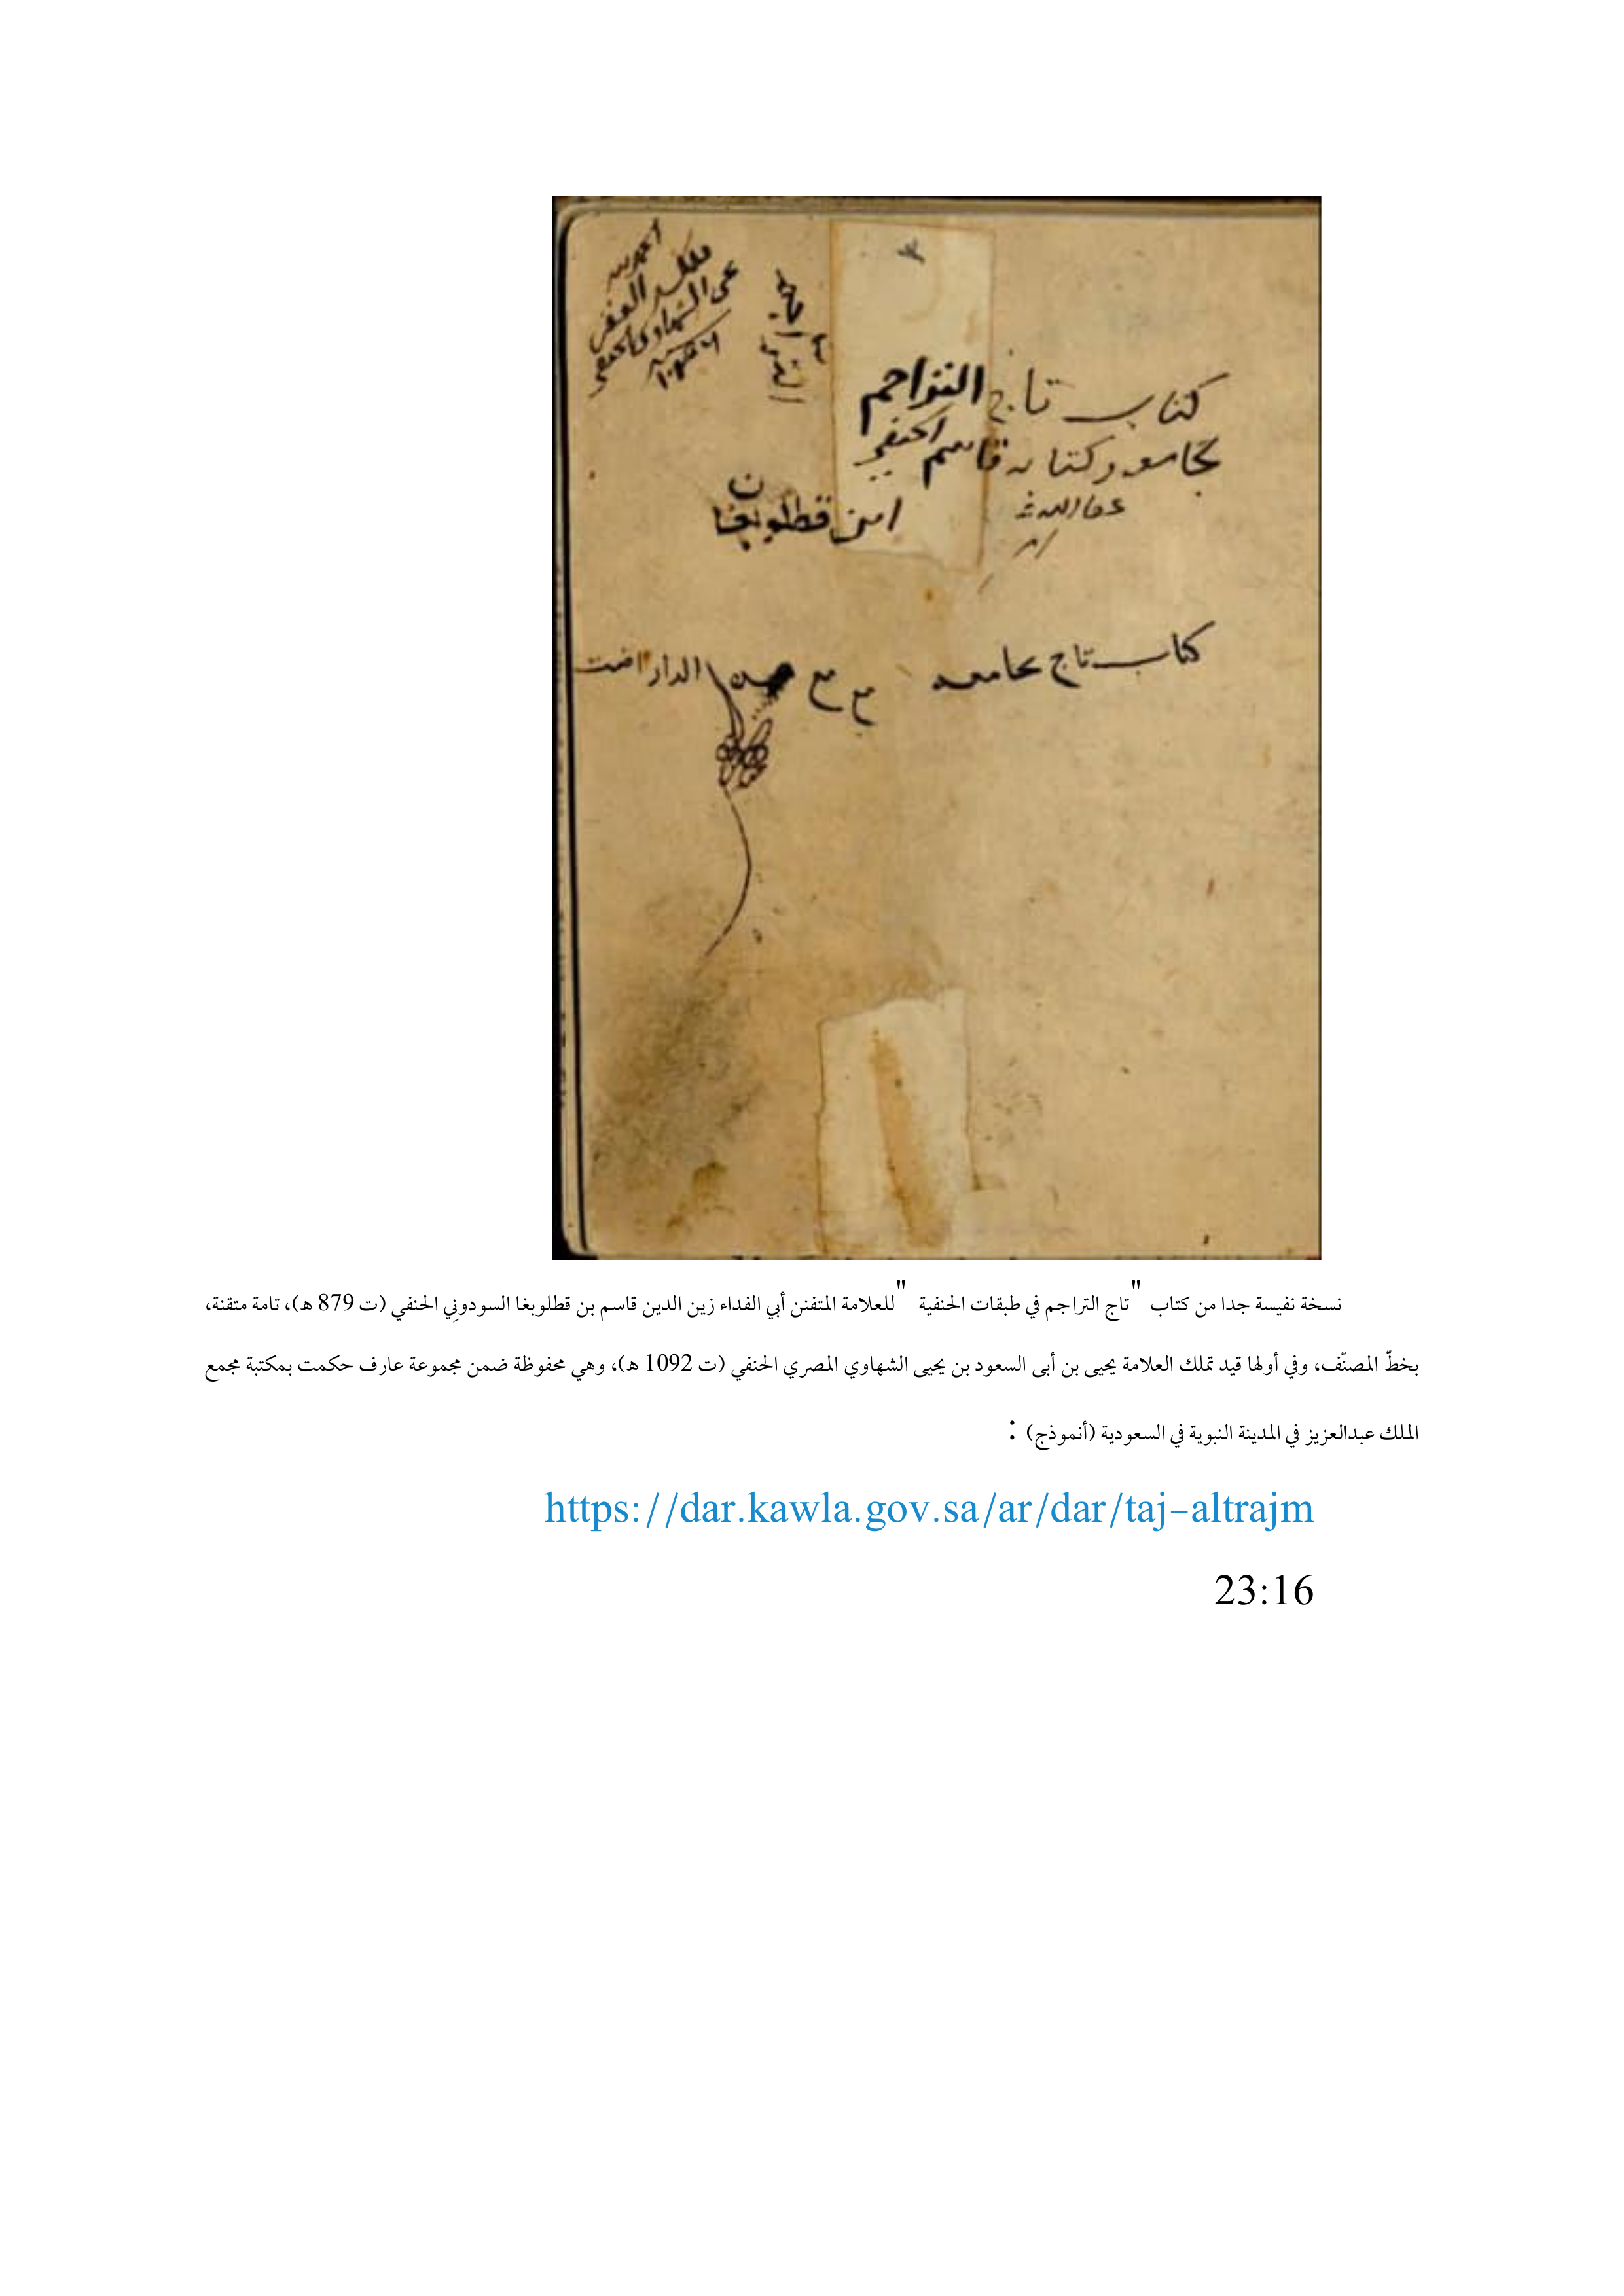 الحمد لله
ملكه الفقير
يحيى الشهاوي الحنفي
كتاب تاج التراجم
لجامعه وكتابه قاسم الحنفي
عفا الله عنه
ابن قطلوبغا
كتاب تاج لجامعه
الدار
نسخة نفيسة جدا من كتاب "تاج التراجم في طبقات الحنفية "للعلامة المتفنن أبي الفداء زين الدين قاسم بن قطلوبغا السودوني الحنفي (ت 879 ه)، تامة متقنة،
بخطّ المصنّف، وفي أولها قيد تملك العلامة يحيى بن أبى السعود بن يحيى الشهاوي المصري الحنفي (ت 1092 ه)، وهي محفوظة ضمن مجموعة عارف حكمت بمكتبة مجمع
الملك عبدالعزيز في المدينة النبوية في السعودية (أنموذج) :
https://dar.kawla.gov.sa/ar/dar/taj-altrajm
23:16